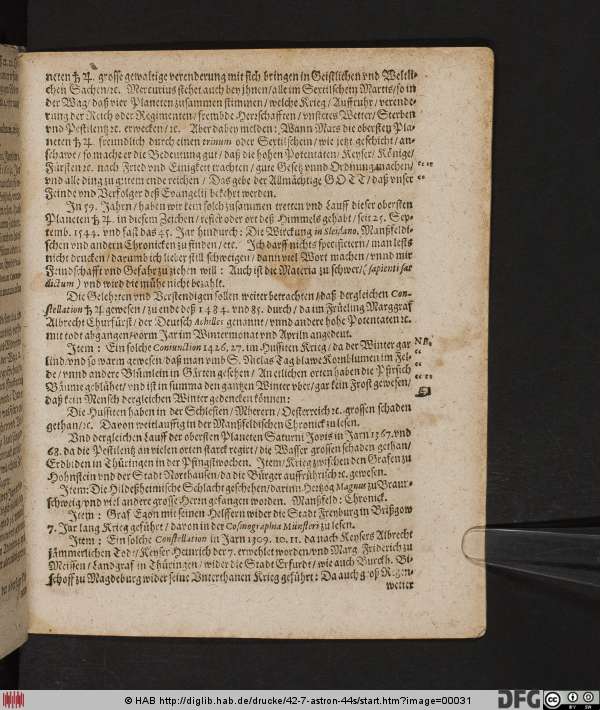 neten ♄ ♃. grosse gewaltige verenderung mit sich bringen in Geistlichen vnd Weltli-
chen Sachen/ꝛc. Mercurius stehet auch bey jhnen/all im Sextilschein Martis/so in
der Wag/daß vier Planeten zusammen stimmen/welche Krieg/Auffruhr/verende-
rung der Reich oder Regimenten/frembde Herrschafften/vnstetes Wetter/Sterben
vnd Pestilentz ꝛc. erwecken/ꝛc. Aber dabey melden: Wann Mars die obersten Pla-
neten ♄ ♃ freundlich durch einen trinum oder Sextilschein/wie jetzt geschicht/an-
schawet/so macht er die Bedeutung gut/daß die hohen Potentaten/Keyser/Könige/
Fürsten ꝛc. nach Fried vnd Einigkeit trachten/gute Gesetz vnnd Ordnung machen/
vnd alle ding zu gutem ende reichen/Das gebe der Allmächtige GOTT/daß vnser
Feinde vnd Verfolger deß Evangelij bekehrt werden.
In 59. Jahren/haben wir kein solch zusammen tretten vnd Lauff dieser obersten
Planeten ♄ ♃. in diesem Zeichen/resier oder ort deß Himmels gehabt/seit 25. Sep-
temb. 1544. vnd fast das 45. Jar hindurch: Die Wirckung in Sleidano, Manßfeldi-
schen vnd andern Chronicken zu finden/etc. Ich darff nichts specificiern/man lests
nicht drucken/darumb ich lieber still schweigen/dann viel Wort machen/vnnd mir
Feindschafft vnd Gefahr zu ziehen will: Auch ist die Materia zu schwer/(sapienti sat
dictum) vnd wird die mühe nicht bezahlt.
Die Gelehrten vnd Verstendigen sollen weiter betrachten/daß dergleichen Con-
stellation ♄ ♃. gewesen/zu ende deß 1484. vnd 85. durch/da im Früeling Marggraf
Albrecht Churfürst/der Deutsch Achilles genannt/vnnd andere hohe Potentaten ꝛc.
mit todt abgangen/vorm Jar im Wintermonat vnd Apriln angedeut.
Item: Ein solche Coniunction 1426. 27. im Hussiten Krieg/da der Winter gar NB.
lind vnd so warm gewesen/daß man vmb S. Niclas Tag blawe Kornblumen im Fel-
de/vnnd andere Blümlein in Gärten gesehen/An etlichen orten haben die Pfirsich
Bäume geblühet/vnd ist in summa den gantzen Winter vber/gar kein Frost gewesen/
daß kein Mensch dergleichen Winter gedencken können:
Die Hussiten haben in der Schlesien/Mherern/Oesterreich ꝛc. grossen schaden
gethan/ꝛc. Davon weitlauffig in der Manßfeldischen Chronick zu lesen.
Vnd dergleichen Lauff der obersten Planeten Saturni Jovis in Jarn 1367. vnd
68. da die Pestilentz an vielen orten starck regirt/die Wasser grossen schaden gethan/
Erdbiden in Thüringen in der Pfingstwochen. Item/Krieg zwischen den Grafen zu
Hohnstein vnd der Stadt Northausen/da die Bürger auffrührisch ꝛc. gewesen.
Item: Die Hildeßhemische Schlacht geschehen/darinn Hertzog Magnus zu Braun-
schweig/vnd viel andere grosse Herrn gefangen worden. Manßfeld: Chronick.
Item: Graf Egon mit seinen Helffern wider die Stadt Freyburg im Brißgow
7. Jar lang Krieg geführt/davon in der Cosmographia Münsteri zu lesen.
Item: Ein solche Constellation in Jarn 1309. 10. 11. da nach Keysers Albrecht
jämmerlichen Tod/Keyser Heinrich der 7. erwehlet worden/vnd Marg. Friderich zu
Meissen/Landgraf in Thüringen/wider die Stadt Erfurdt/wie auch Burckh. Bi-
schoff zu Magdeburg wider seine Vnterthanen Krieg geführt: Da auch groß Regen-
wetter
© HAB http://diglib.hab.de/drucke/42-7-astron-44s/start.htm?image=00031
DFG